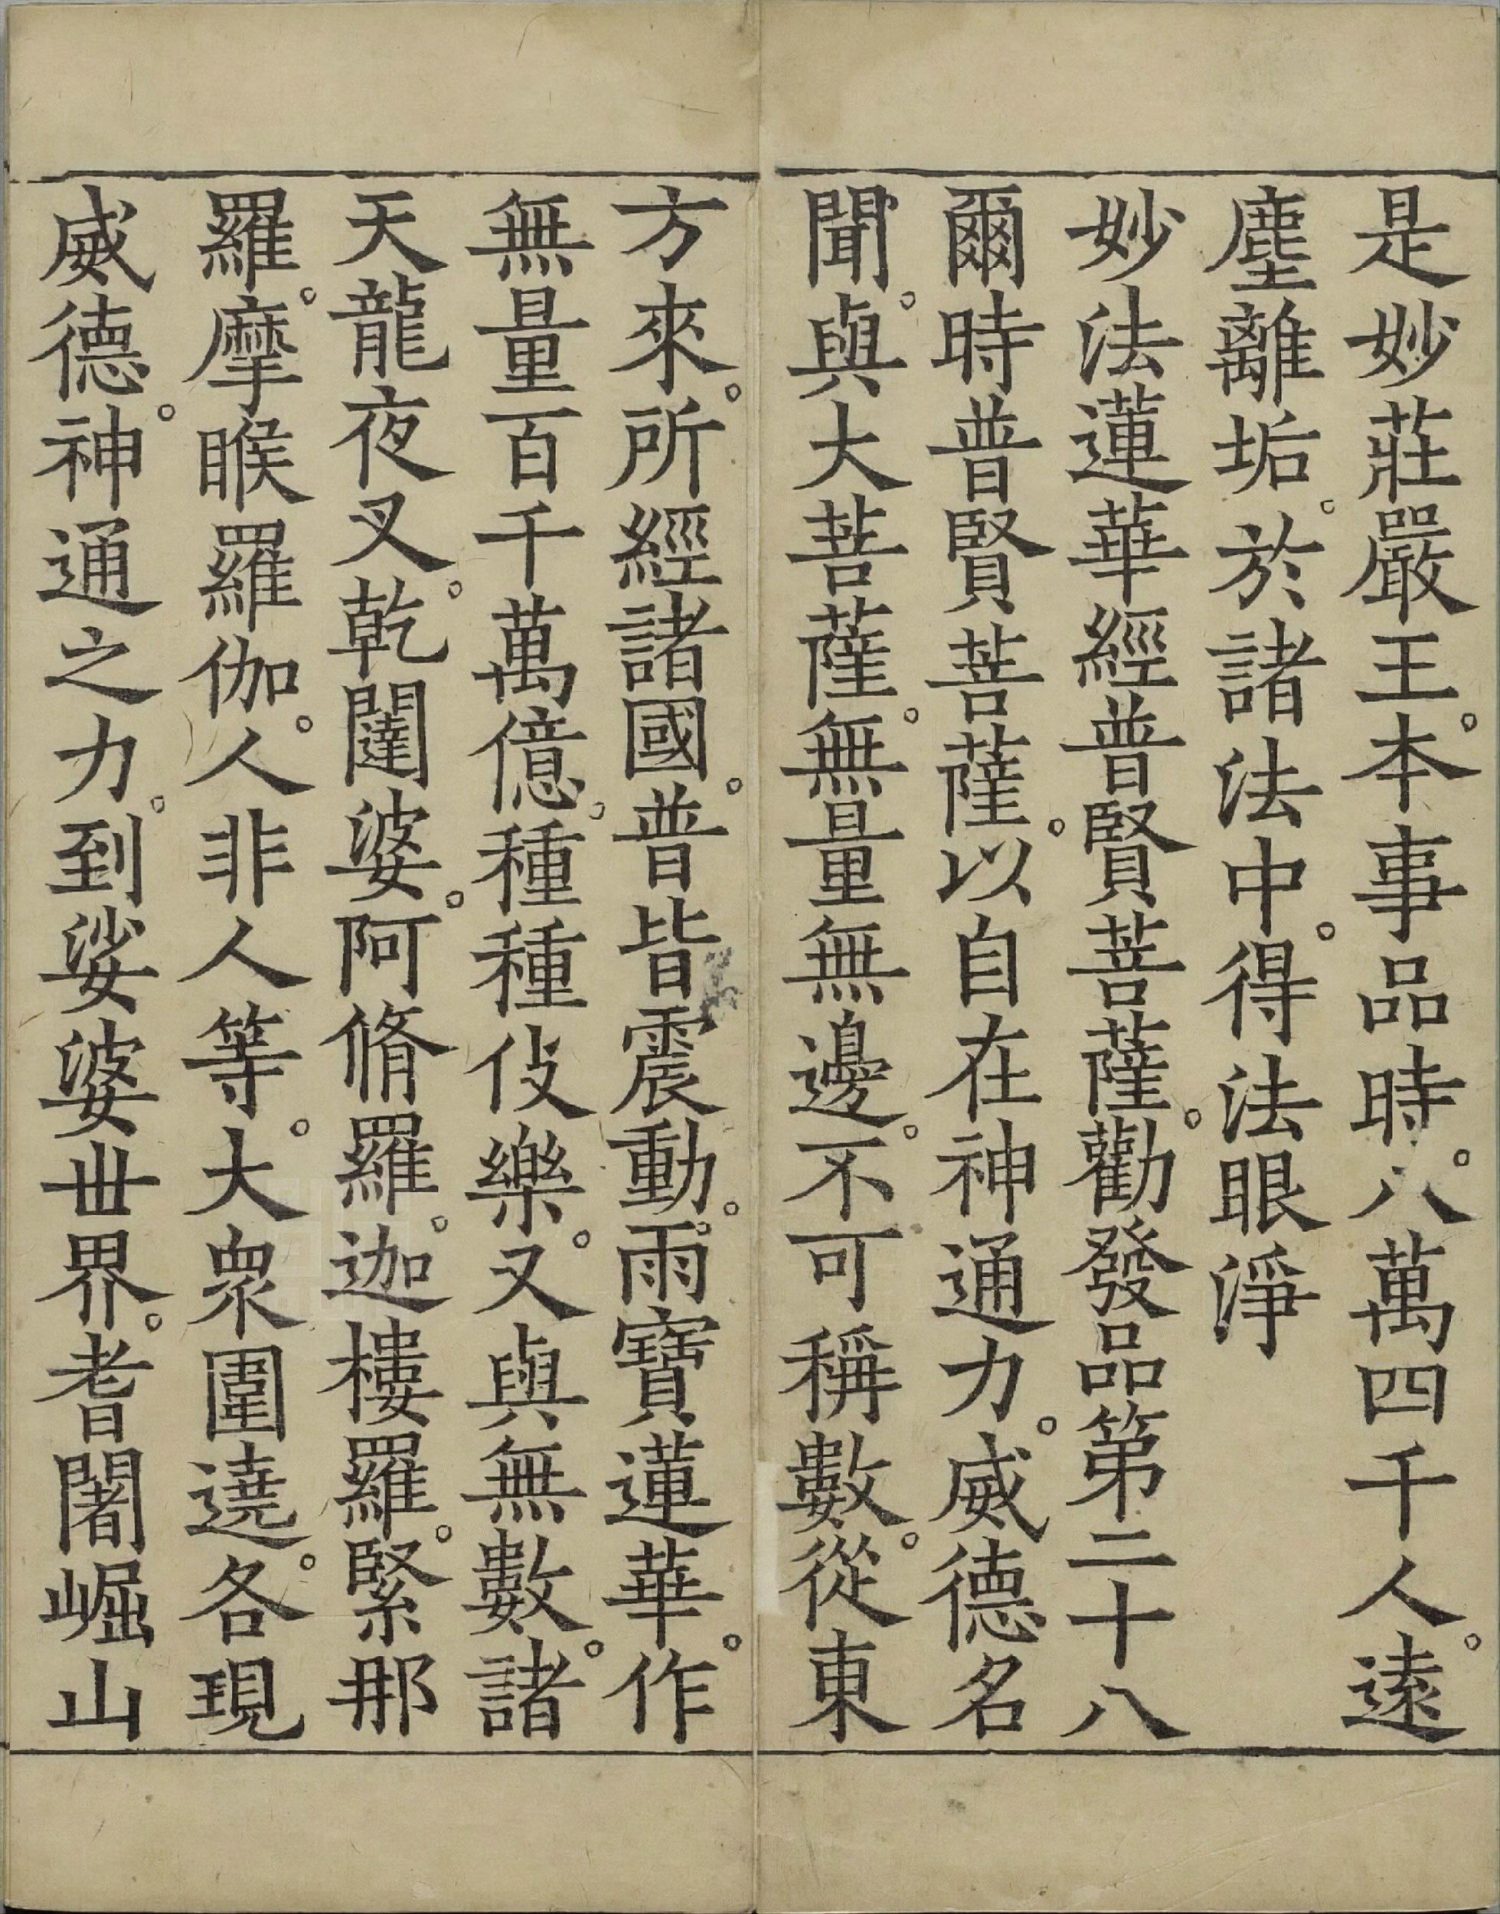 是妙莊嚴王。本事品時。八萬四千人。遠
塵離垢。於諸法中。得法眼淨
妙法蓮華經普賢菩薩。勸發品第二十八
爾時普賢菩薩。以自在神通力。威德名
聞。與大菩薩。無量無邊。不可稱數。從東
方來。所經諸國。普皆震動。雨寶蓮華。作
無量百千萬億。種種伎樂。又與無數。諸
天龍夜叉。乾闥婆。阿脩羅。迦樓羅。緊那
羅。摩睺羅伽。人非人等。大眾圍遶。各現
威德。神通之力。到娑婆世界。耆闍崛山